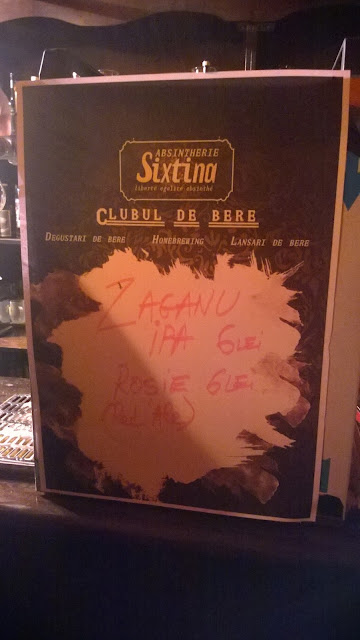 ABSINTHERIE
Sixtina
liberté egalité absinthé
CLUBUL DE BERE
DEGUSTARI DE BERE HOMEBREWING LANSARI DE BERE
ZAGANU
IPA 6 LEI
ROSIE 6 LEI